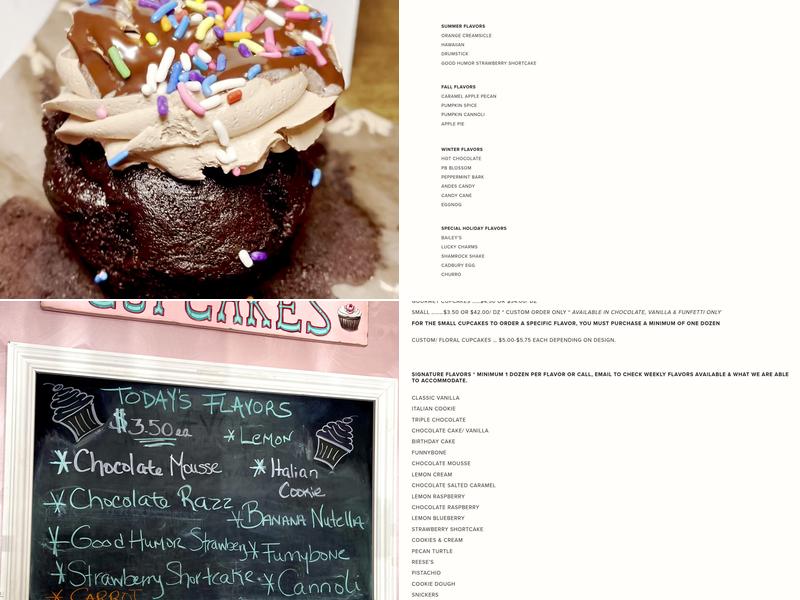 SUMMER FLAVORS
ORANGE CREAMSICLE
HAWAIIAN
DRUMSTICK
GOOD HUMOR STRAWBERRY SHORTCAKE
FALL FLAVORS
CARAMEL APPLE PECAN
PUMPKIN SPICE
PUMPKIN CANNOLI
APPLE PIE
WINTER FLAVORS
HOT CHOCOLATE
PB BLOSSOM
PEPPERMINT BARK
ANDES CANDY
CANDY CANE
EGGNOG
SPECIAL HOLIDAY FLAVORS
BAILEY'S
LUCKY CHARMS
SHAMROCK SHAKE
CADBURY EGG
CHURRO
CUPCAKES
TODAY'S FLAVORS
$3.50 ea
* Lemon
* Chocolate Mousse
* Italian
Cookie
* Chocolate Razz
* BANANA Nutella
* Good Humor Strawberry
* Funnybone
* Strawberry Shortcake
* Cannoli
* CARROT
GOURMET CUPCAKES ......$4.50 OR $54.00/ DZ
SMALL ........$3.50 OR $42.00/ DZ * CUSTOM ORDER ONLY * AVAILABLE IN CHOCOLATE, VANILLA & FUNFETTI ONLY
FOR THE SMALL CUPCAKES TO ORDER A SPECIFIC FLAVOR, YOU MUST PURCHASE A MINIMUM OF ONE DOZEN
CUSTOM/ FLORAL CUPCAKES ... $5.00-$5.75 EACH DEPENDING ON DESIGN.
SIGNATURE FLAVORS * MINIMUM 1 DOZEN PER FLAVOR OR CALL, EMAIL TO CHECK WEEKLY FLAVORS AVAILABLE & WHAT WE ARE ABLE
TO ACCOMMODATE.
CLASSIC VANILLA
ITALIAN COOKIE
TRIPLE CHOCOLATE
CHOCOLATE CAKE/ VANILLA
BIRTHDAY CAKE
FUNNYBONE
CHOCOLATE MOUSSE
LEMON CREAM
CHOCOLATE SALTED CARAMEL
LEMON RASPBERRY
CHOCOLATE RASPBERRY
LEMON BLUEBERRY
STRAWBERRY SHORTCAKE
COOKIES & CREAM
PECAN TURTLE
REESE'S
PISTACHIO
COOKIE DOUGH
SNICKERS